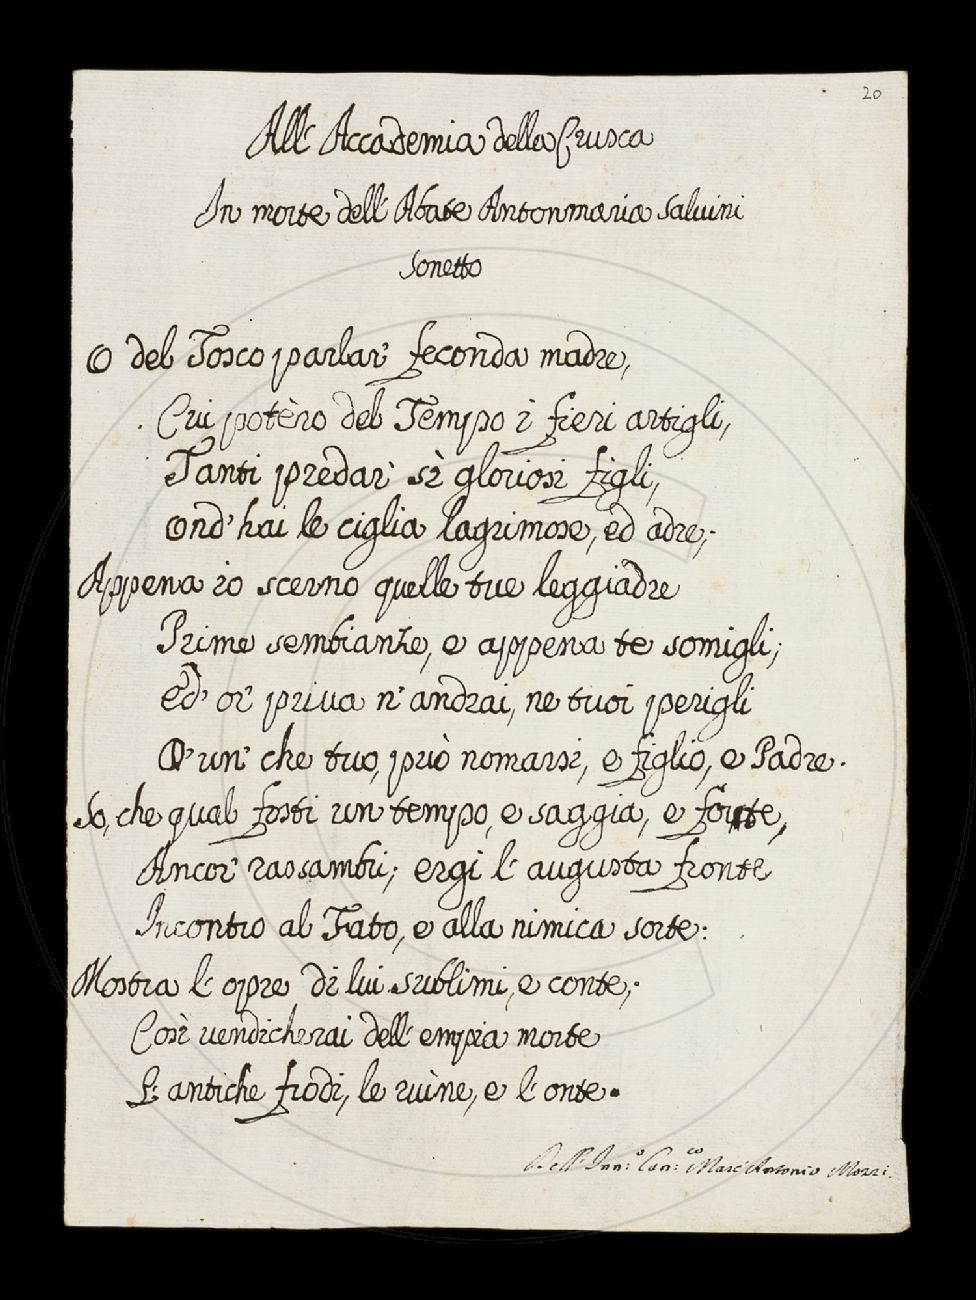 20
All' Accademia della Crusca
In morte dell' Abate Antonmaria Salvini
Sonetto
O del Tosco parlar' feconda madre,
Cui potèro del Tempo i fieri artigli,
Tanti predar' sì gloriosi figli,
Ond' hai le ciglia lagrimose, ed adre;
Appena io scerno quelle tue leggiadre
Prime sembianze, e appena te somigli;
Ed' or' priva n' andrai, ne tuoi perigli
D' un' che tuo, può nomarsi, e figlio, e Padre.
So, che qual fosti un tempo, e saggia, e forte,
Ancor' rassambri; ergi l' augusta fronte
Incontro al Fato, e alla nimica sorte:
Mostra l' opre di lui sublimi, e conte;
Così vendicherai dell' empia morte
L' antiche frodi, le ruìne, e l' onte.
Dell' Inn:o Can:co Marc' Antonio Mozzi.